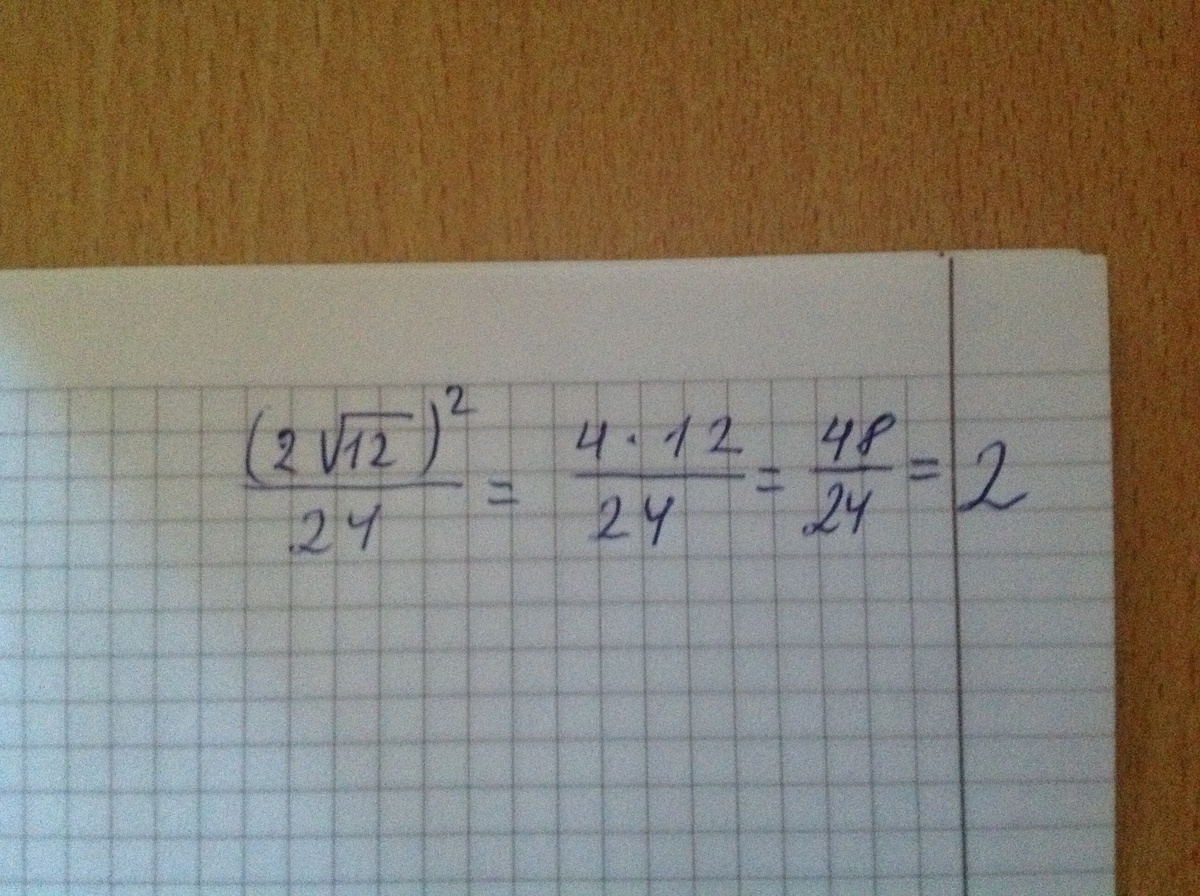 (2√12)²/24 = 4·12/24 = 48/24 = 2